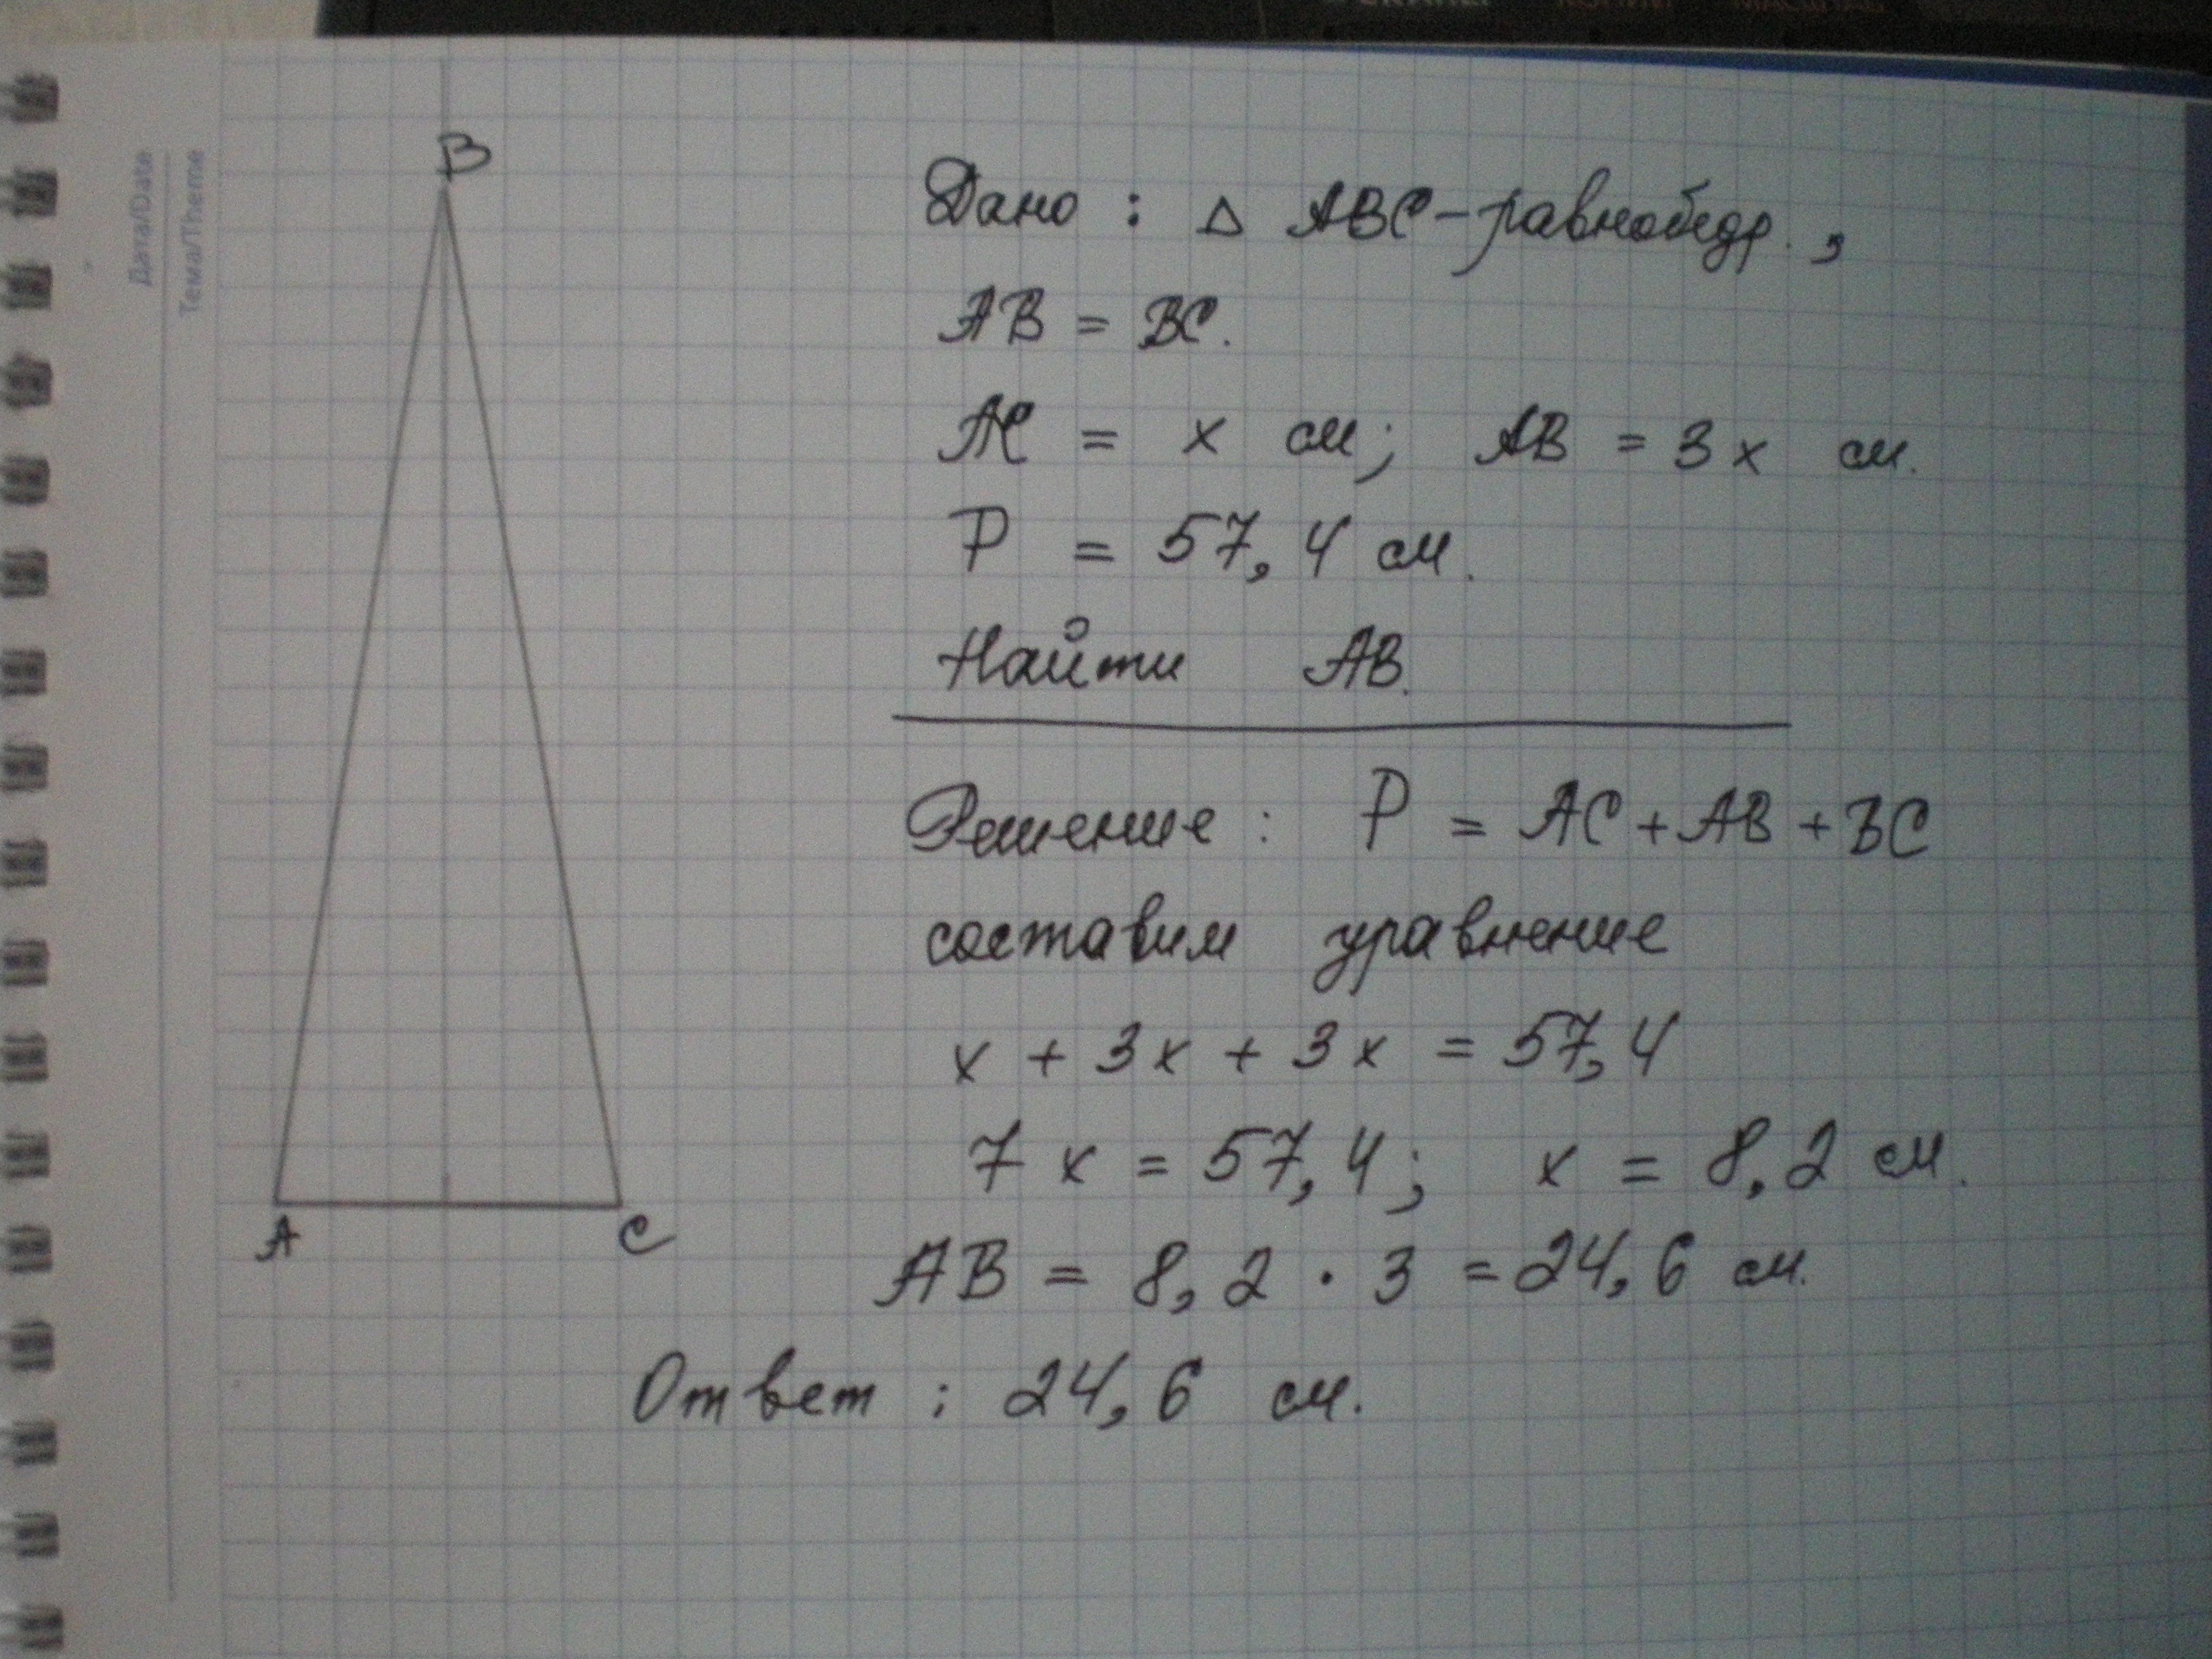 Дата/Date
Тема/Theme
B
A
C
Дано : △ ABC - равнобедр. ,
AB = BC.
AC = x см; AB = 3x см.
P = 57,4 см.
Найти AB.
Решение : P = AC + AB + BC
составим уравнение
x + 3x + 3x = 57,4
7x = 57,4; x = 8,2 см.
AB = 8,2 · 3 = 24,6 см.
Ответ : 24,6 см.